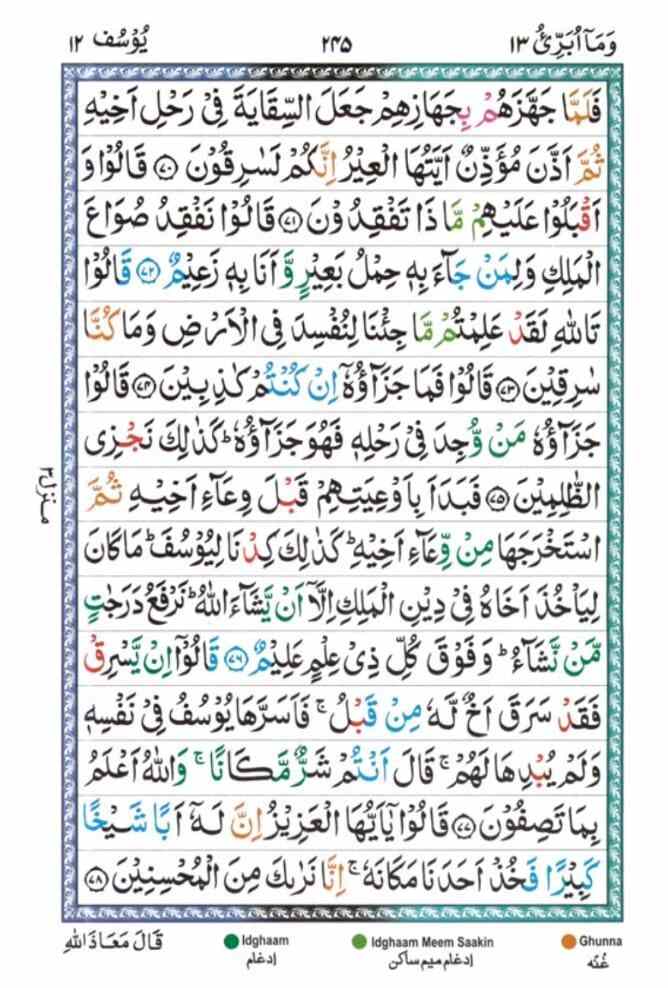 وَمَآ اُبَرِّئُ ١٣
٢٤٥
يُوْسُف ١٢
فَلَمَّا جَهَّزَهُمْ بِجَهَازِهِمْ جَعَلَ السِّقَايَةَ فِيْ رَحْلِ اَخِيْهِ
ثُمَّ اَذَّنَ مُؤَذِّنٌ اَيَّتُهَا الْعِيْرُ اِنَّكُمْ لَسٰرِقُوْنَ ۝٧٠ قَالُوْا وَ
اَقْبَلُوْا عَلَيْهِمْ مَّا ذَا تَفْقِدُوْنَ ۝٧١ قَالُوْا نَفْقِدُ صُوَاعَ
الْمَلِكِ وَلِمَنْ جَآءَ بِهٖ حِمْلُ بَعِيْرٍ وَّ اَنَا بِهٖ زَعِيْمٌ ۝٧٢ قَالُوْا
تَاللّٰهِ لَقَدْ عَلِمْتُمْ مَّا جِئْنَا لِنُفْسِدَ فِى الْاَرْضِ وَمَا كُنَّا
سٰرِقِيْنَ ۝٧٣ قَالُوْا فَمَا جَزَآؤُهٗۤ اِنْ كُنْتُمْ كٰذِبِيْنَ ۝٧٤ قَالُوْا
جَزَآؤُهٗ مَنْ وُّجِدَ فِيْ رَحْلِهٖ فَهُوَ جَزَآؤُهٗ ؕ كَذٰلِكَ نَجْزِى
الظّٰلِمِيْنَ ۝٧٥ فَبَدَاَ بِاَوْعِيَتِهِمْ قَبْلَ وِعَآءِ اَخِيْهِ ثُمَّ
اسْتَخْرَجَهَا مِنْ وِّعَآءِ اَخِيْهِ ؕ كَذٰلِكَ كِدْنَا لِيُوْسُفَ ؕ مَا كَانَ
لِيَاْخُذَ اَخَاهُ فِيْ دِيْنِ الْمَلِكِ اِلَّاۤ اَنْ يَّشَآءَ اللّٰهُ ؕ نَرْفَعُ دَرَجٰتٍ
مَّنْ نَّشَآءُ ؕ وَ فَوْقَ كُلِّ ذِيْ عِلْمٍ عَلِيْمٌ ۝٧٦ قَالُوْۤا اِنْ يَّسْرِقْ
فَقَدْ سَرَقَ اَخٌ لَّهٗ مِنْ قَبْلُ ۚ فَاَسَرَّهَا يُوْسُفُ فِيْ نَفْسِهٖ
وَلَمْ يُبْدِهَا لَهُمْ ۚ قَالَ اَنْتُمْ شَرٌّ مَّكَانًا ۚ وَاللّٰهُ اَعْلَمُ
بِمَا تَصِفُوْنَ ۝٧٧ قَالُوْا يٰۤاَيُّهَا الْعَزِيْزُ اِنَّ لَهٗۤ اَبًا شَيْخًا
كَبِيْرًا فَخُذْ اَحَدَنَا مَكَانَهٗ ۚ اِنَّا نَرٰىكَ مِنَ الْمُحْسِنِيْنَ ۝٧٨
منزل ٣
قَالَ مَعَاذَ اللّٰهِ
Idghaam
ادغام
Idghaam Meem Saakin
ادغام میم ساکن
Ghunna
غُنّه